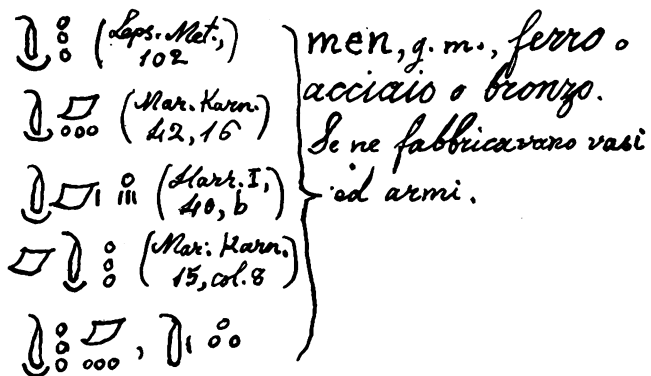 (Leps. Met.,
102)
(Mar. Karn.
42, 16)
(Harr. I,
40, b)
(Mar. Karn.
15, col. 8)
,
men, g. m., ferro o
acciaio o bronzo.
Se ne fabbricavano vasi
ed armi.